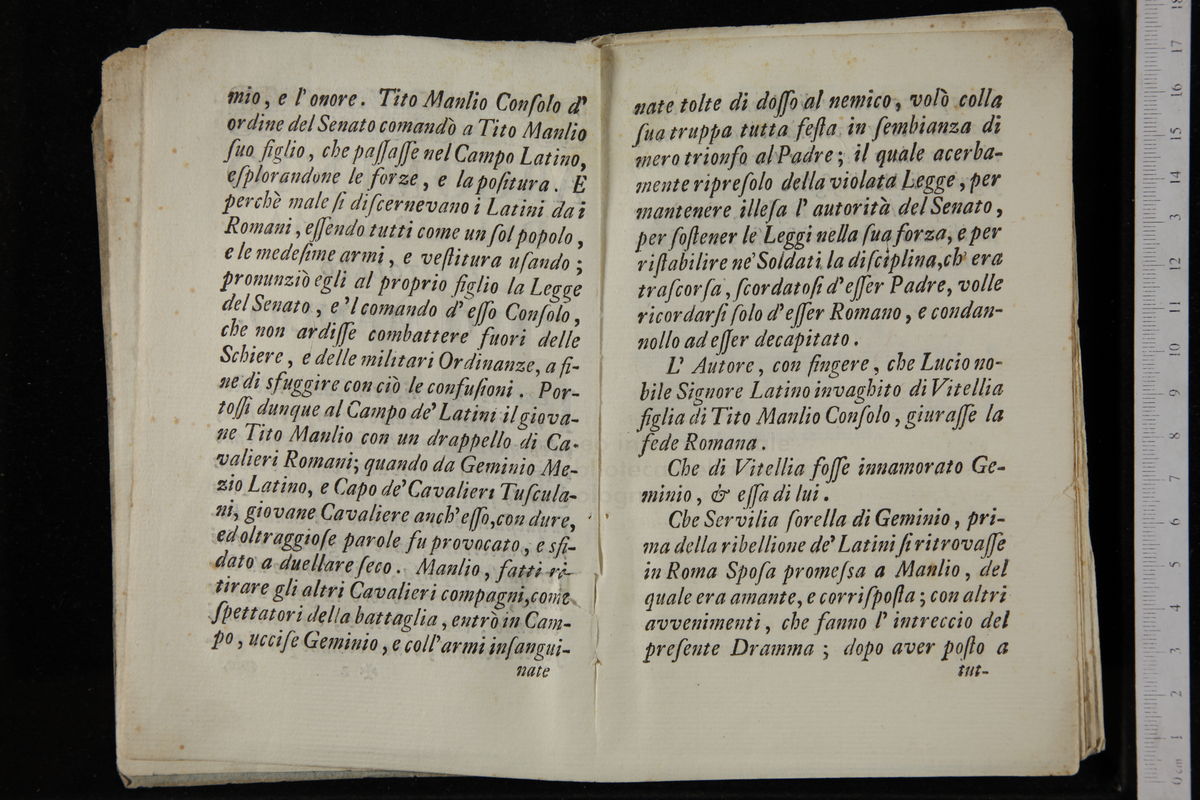 mio, e l'onore. Tito Manlio Conſolo d'
ordine del Senato comandò a Tito Manlio
ſuo figlio, che paſſaſſe nel Campo Latino,
eſplorandone le forze, e la poſitura. E
perchè male ſi diſcernevano i Latini dai
Romani, eſſendo tutti come un ſol popolo,
e le medeſime armi, e veſtitura uſando;
pronunziò egli al proprio figlio la Legge
del Senato, e 'l comando d' eſſo Conſolo,
che non ardiſſe combattere fuori delle
Schiere, e delle militari Ordinanze, a fi-
ne di sfuggire con ciò le confuſioni. Por-
toſſi dunque al Campo de' Latini il giova-
ne Tito Manlio con un drappello di Ca-
valieri Romani; quando da Geminio Me-
zio Latino, e Capo de' Cavalieri Tuſcula-
ni, giovane Cavaliere anch' eſſo, con dure,
ed oltraggioſe parole fu provocato, e sfi-
dato a duellare ſeco. Manlio, fatti ri-
tirare gli altri Cavalieri compagni, come
ſpettatori della battaglia, entrò in Cam-
po, ucciſe Geminio, e coll' armi inſangui-
nate
nate tolte di doſſo al nemico, volò colla
ſua truppa tutta feſta in ſembianza di
mero trionfo al Padre; il quale acerba-
mente ripreſolo della violata Legge, per
mantenere illeſa l' autorità del Senato,
per ſoſtener le Leggi nella ſua forza, e per
riſtabilire ne' Soldati la diſciplina, ch' era
traſcorſa, ſcordatoſi d' eſſer Padre, volle
ricordarſi ſolo d' eſſer Romano, e condan-
nollo ad eſſer decapitato.
L' Autore, con fingere, che Lucio no-
bile Signore Latino invaghito di Vitellia
figlia di Tito Manlio Conſolo, giuraſſe la
fede Romana.
Che di Vitellia foſſe innamorato Ge-
minio, & eſſa di lui.
Che Servilia ſorella di Geminio, pri-
ma della ribellione de' Latini ſi ritrovaſſe
in Roma Spoſa promeſsa a Manlio, del
quale era amante, e corriſpoſta; con altri
avvenimenti, che fanno l' intreccio del
preſente Dramma; dopo aver poſto a
tut-
0 cm
1
2
3
4
5
6
7
8
9
10
11
12
13
14
15
16
17
18